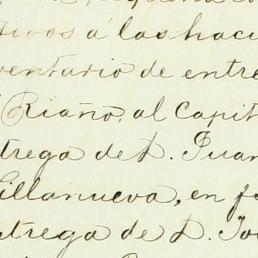 tivos á las haci
ventario de entre
Riaño, al Capit
trega de D. Juan
Villanueva, en f
ntrega de D. Jo